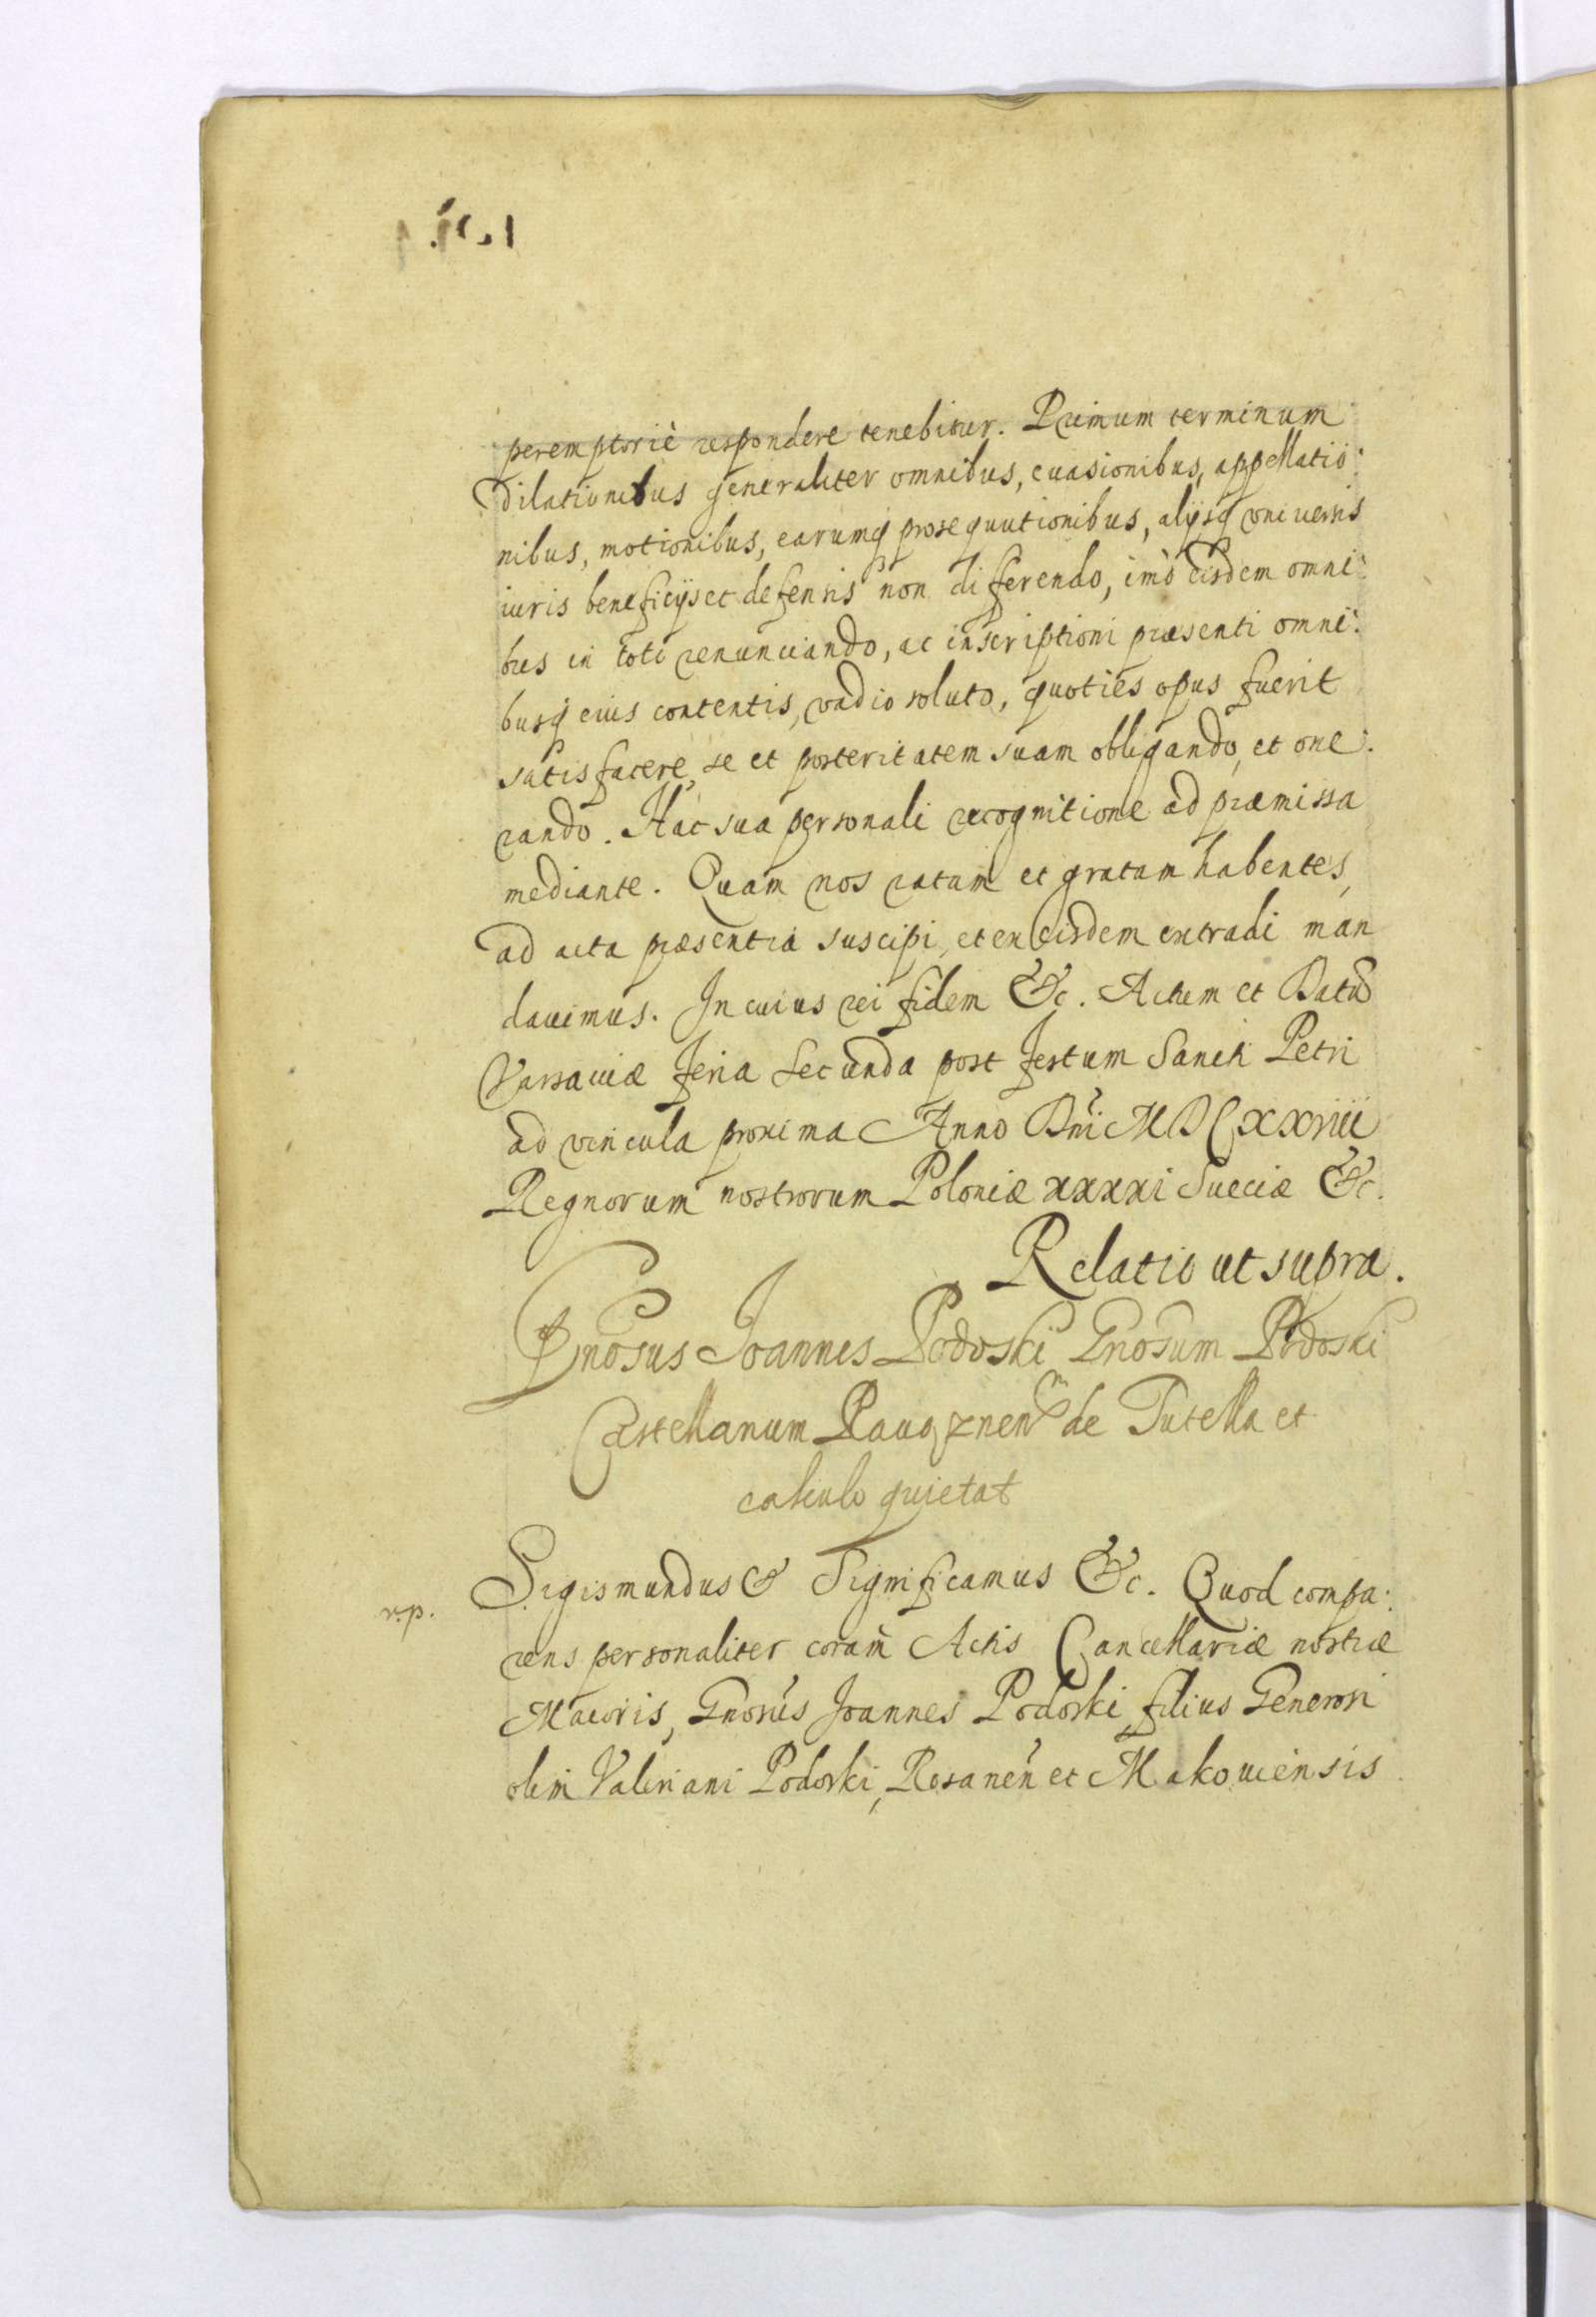 peremptoriè respondere tenebitur. Primum terminum
dilationibus generaliter omnibus, euasionibus, appellatio:
nibus, motionibus, earumq prosequutionibus, alijsq vniuersis
iuris beneficijs et defensis non differendo, imò eisdem omni:
bus in toto renunciando, ac inscriptioni præsenti omni:
busq eius contentis, vadio soluto, quoties opus fuerit
satisfacere, se et posteritatem suam obligando, et one:
rando. Hac sua personali recognitione ad præmissa
mediante. Quam nos ratam et gratam habentes,
ad acta præsentia suscipi, et ex eisdem extradi man
dauimus. In cuius rei fidem &c. Actum et Datũ
Varsauiæ feria secunda post festum Sancti Petri
ad vincula proxima Anno Dni MDCXXVIII
Regnorum nostrorum Poloniæ XXXXI Sueciæ &c.
Relatio ut supra.
Gnosus Joannes Podoski Gnosum Podoski
Castellanum de Tutella et
calculo quietat
r.p.
Sigismundus & Significamus &c. Quod compa:
rens personaliter coram Actis Cancellariæ nostræ
Maioris, Gnosus Joannes Podoski filius Generosi
olim Valeriani Podoski, Rosanen et Makouiensis